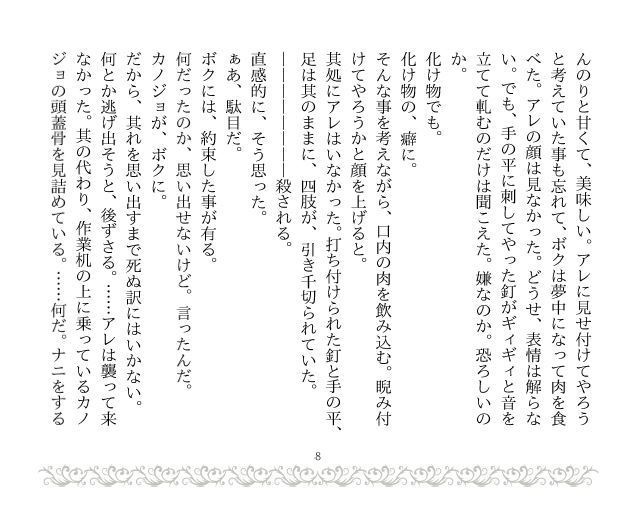 んのりと甘くて、美味しい。アレに見せ付けてやろう
と考えていた事も忘れて、ボクは夢中になって肉を食
べた。アレの顔は見なかった。どうせ、表情は解らな
い。でも、手の平に刺してやった釘がギィギィと音を
立てて軋むのだけは聞こえた。嫌なのか。恐ろしいの
か。
化け物でも。
化け物の、癖に。
そんな事を考えながら、口内の肉を飲み込む。睨み付
けてやろうかと顔を上げると。
其処にアレはいなかった。打ち付けられた釘と手の平、
足は其のままに、四肢が、引き千切られていた。
―――――――殺される。
直感的に、そう思った。
ぁあ、駄目だ。
ボクには、約束した事が有る。
何だったのか、思い出せないけど。言ったんだ。
カノジョが、ボクに。
だから、其れを思い出すまで死ぬ訳にはいかない。
何とか逃げ出そうと、後ずさる。……アレは襲って来
なかった。其の代わり、作業机の上に乗っているカノ
ジョの頭蓋骨を見詰めている。……何だ。ナニをする
8